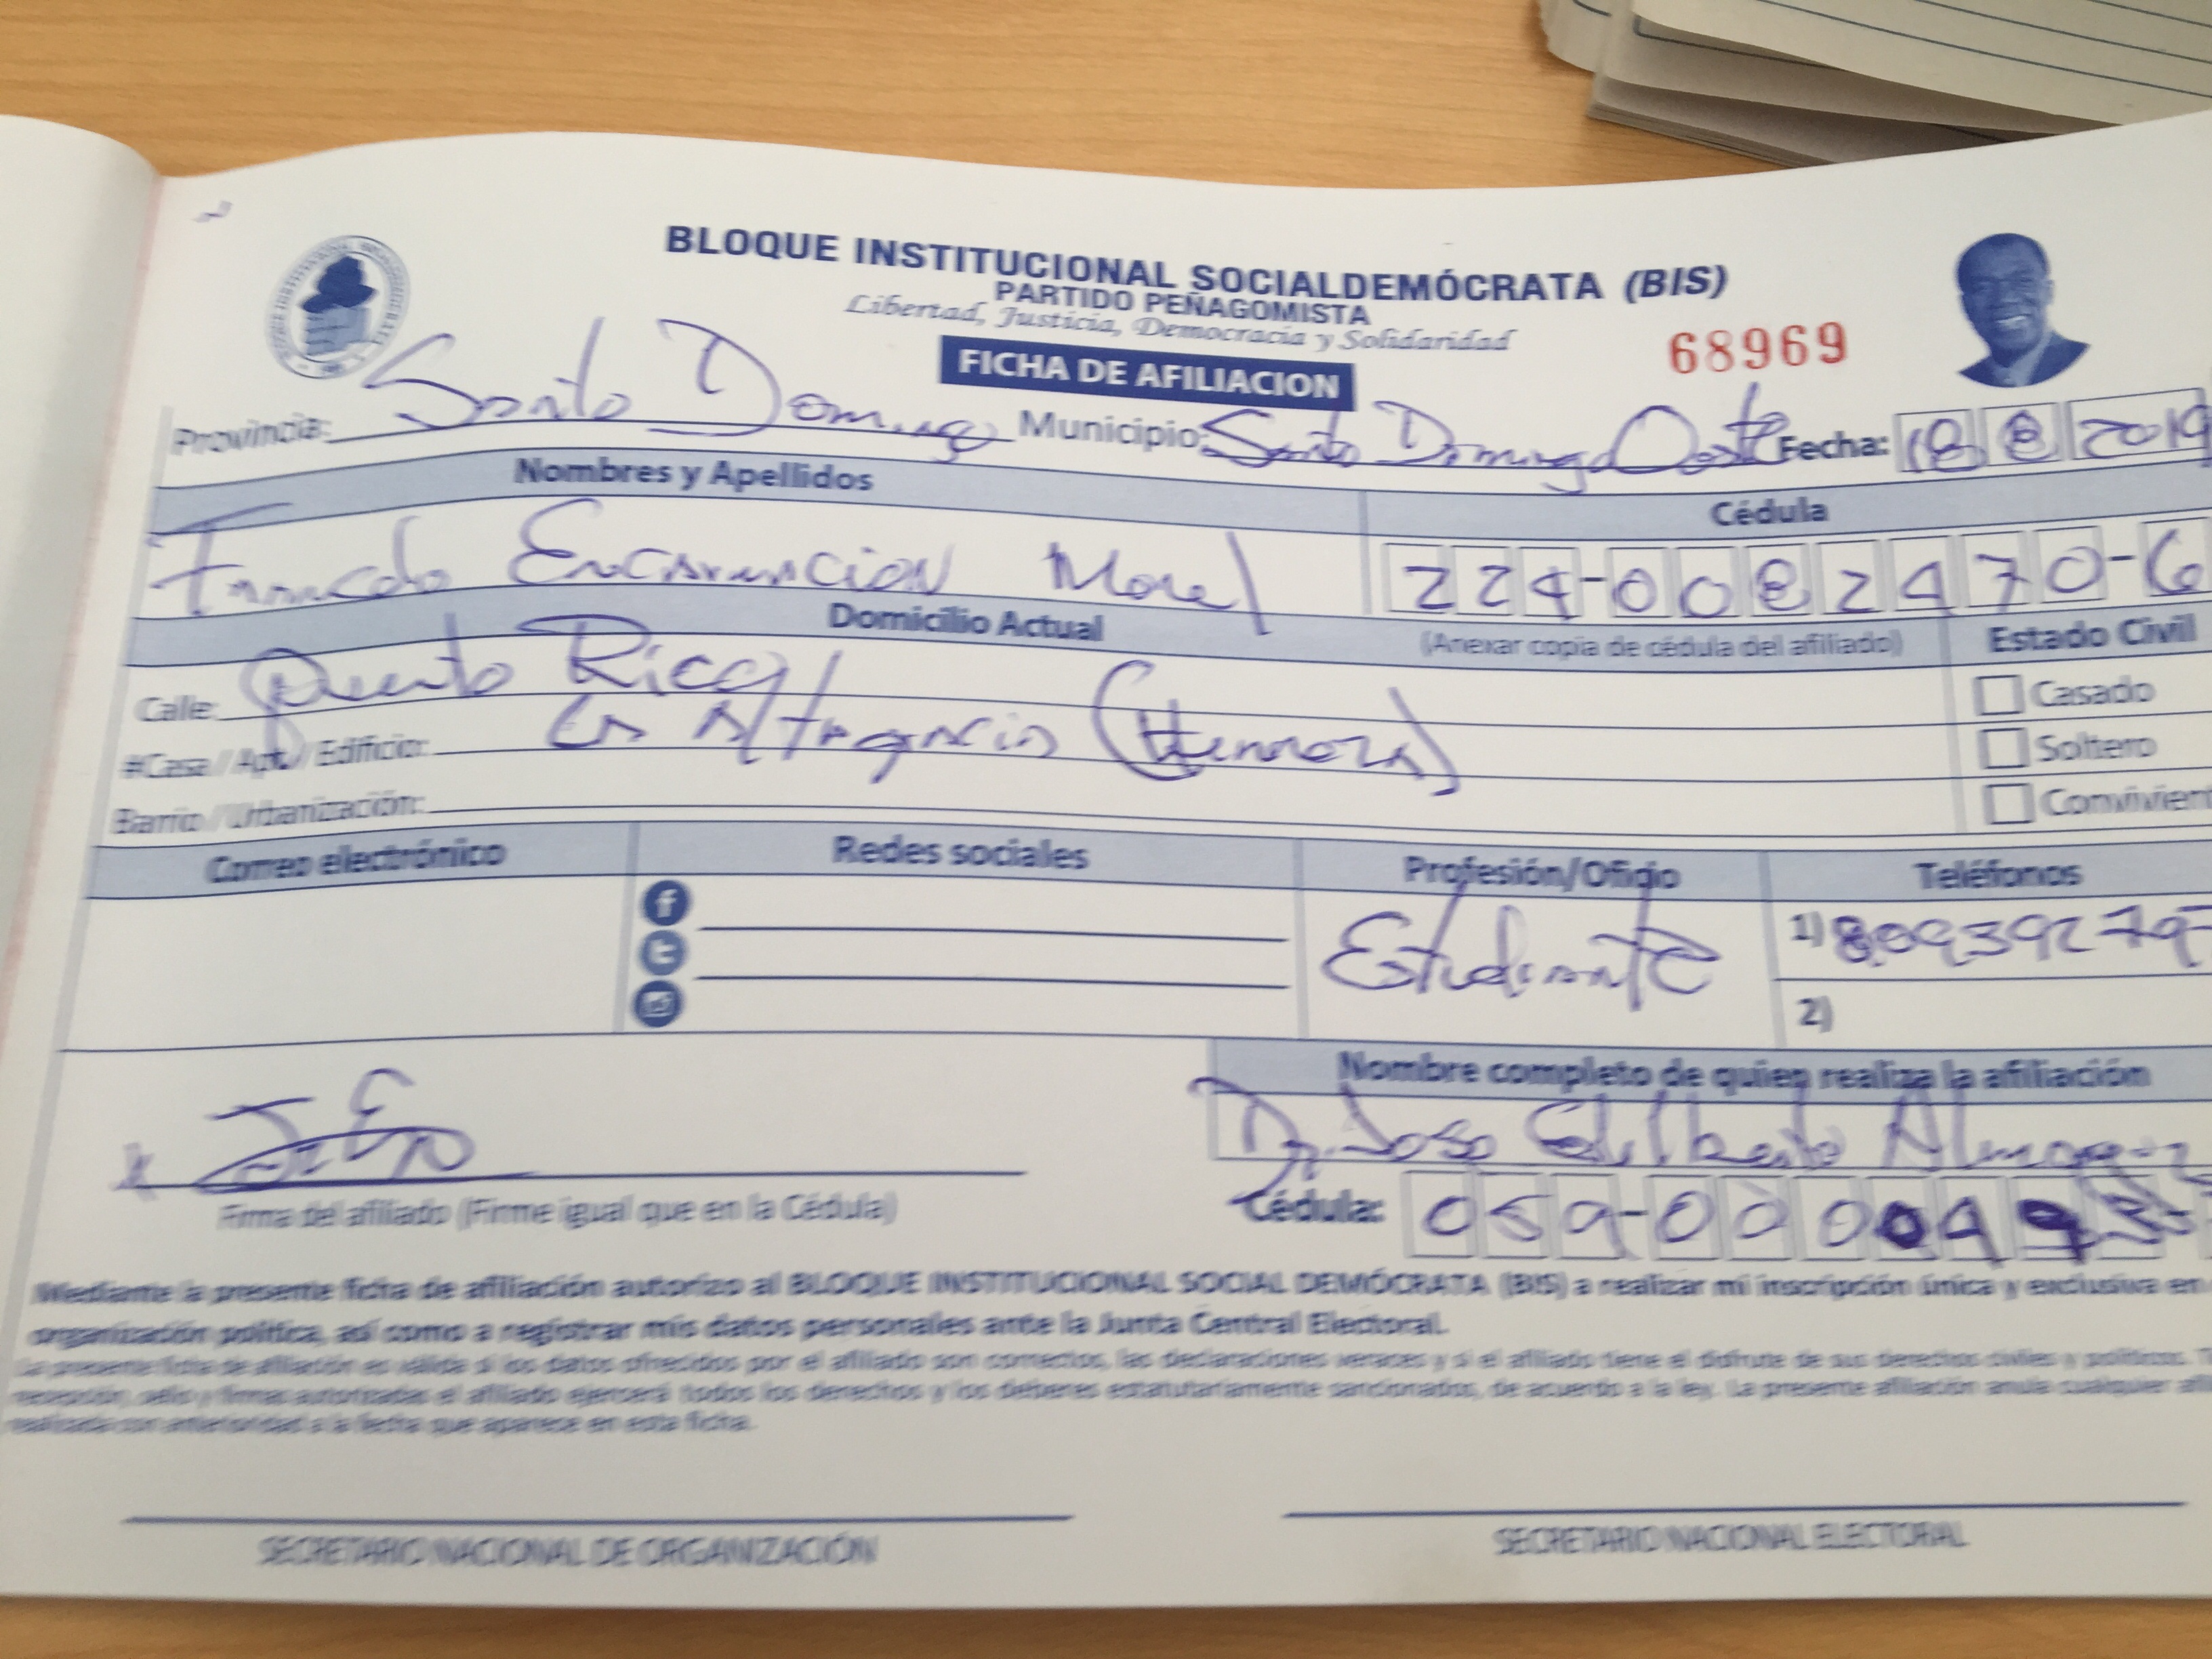 BLOQUE INSTITUCIONAL SOCIALDEMÓCRATA (BIS)
PARTIDO PEÑAGOMISTA
Libertad, Justicia, Democracia y Solidaridad
68969
FICHA DE AFILIACION
Provincia: Santo Domingo Municipio: Santo Domingo Oeste Fecha: 18 8 2019
Nombres y Apellidos
Cédula
Encarnacion Morel 224-0082470-6
Domicilio Actual
(Anexar copia de cédula del afiliado)
Estado Civil
Calle: puerto Rico
Casado
#Casa / Apt. / Edificio: La Altagracia (Herrera)
Soltero
Barrio / Urbanización:
Correo electrónico
Redes sociales
Profesión/Oficio
Teléfonos
Estudiante
1) 809392797
2)
Nombre completo de quien realiza la afiliación
Dr. Jose Edilberto
Firma del afiliado (Firme igual que en la Cédula)
Cédula: 059-000
Mediante la presente ficha de afiliación autorizo al BLOQUE INSTITUCIONAL SOCIAL DEMÓCRATA (BIS) a realizar mi inscripción única y exclusiva en
organización política, así como a registrar mis datos personales ante la Junta Central Electoral.
La presente ficha de afiliación es válida si los datos ofrecidos por el afiliado son correctos, las declaraciones veraces y si el afiliado tiene el disfrute de sus derechos civiles y políticos.
recepción, sello y firmas autorizadas el afiliado ejercerá todos los derechos y los deberes estatutariamente sancionados, de acuerdo a la ley. La presente afiliación anula cualquier
realizada con anterioridad a la fecha que aparece en esta ficha.
SECRETARIO NACIONAL DE ORGANIZACIÓN
SECRETARIO NACIONAL ELECTORAL